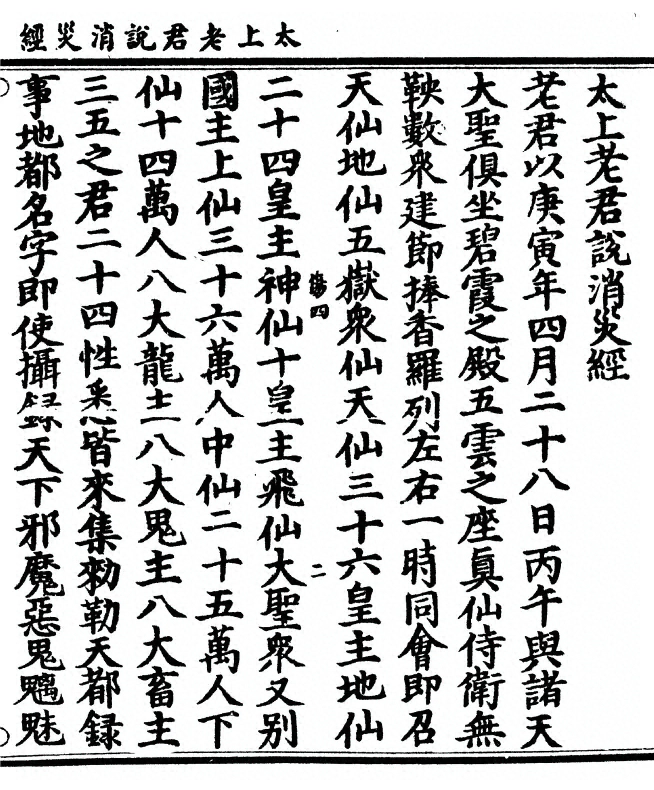 太上老君說消災經
太上老君說消災經
老君以庚寅年四月二十八日丙午與諸天
大聖俱坐碧霞之殿五雲之座眞仙侍衛無
鞅數衆建節捧香羅列左右一時同會即召
天仙地仙五嶽衆仙天仙三十六皇主地仙
傷四 二
二十四皇主神仙十皇主飛仙大聖衆又别
國主上仙三十六萬人中仙二十五萬人下
仙十四萬人八大龍主八大鬼主八大畜主
三五之君二十四性悉皆來集勑勒天都録
事地都名字即使攝録天下邪魔惡鬼魑魅